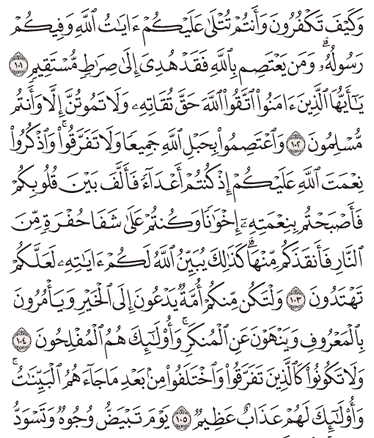 وَكَيْفَ تَكْفُرُونَ وَأَنتُمْ تُتْلَىٰ عَلَيْكُمْ ءَايَٰتُ ٱللَّهِ وَفِيكُمْ
رَسُولُهُۥ ۗ وَمَن يَعْتَصِم بِٱللَّهِ فَقَدْ هُدِىَ إِلَىٰ صِرَٰطٍ مُّسْتَقِيمٍ ١٠١
يَٰٓأَيُّهَا ٱلَّذِينَ ءَامَنُوا۟ ٱتَّقُوا۟ ٱللَّهَ حَقَّ تُقَاتِهِۦ وَلَا تَمُوتُنَّ إِلَّا وَأَنتُم
مُّسْلِمُونَ ١٠٢ وَٱعْتَصِمُوا۟ بِحَبْلِ ٱللَّهِ جَمِيعًا وَلَا تَفَرَّقُوا۟ ۚ وَٱذْكُرُوا۟
نِعْمَتَ ٱللَّهِ عَلَيْكُمْ إِذْ كُنتُمْ أَعْدَآءً فَأَلَّفَ بَيْنَ قُلُوبِكُمْ
فَأَصْبَحْتُم بِنِعْمَتِهِۦٓ إِخْوَٰنًا وَكُنتُمْ عَلَىٰ شَفَا حُفْرَةٍ مِّنَ
ٱلنَّارِ فَأَنقَذَكُم مِّنْهَا ۗ كَذَٰلِكَ يُبَيِّنُ ٱللَّهُ لَكُمْ ءَايَٰتِهِۦ لَعَلَّكُمْ
تَهْتَدُونَ ١٠٣ وَلْتَكُن مِّنكُمْ أُمَّةٌ يَدْعُونَ إِلَى ٱلْخَيْرِ وَيَأْمُرُونَ
بِٱلْمَعْرُوفِ وَيَنْهَوْنَ عَنِ ٱلْمُنكَرِ ۚ وَأُو۟لَٰٓئِكَ هُمُ ٱلْمُفْلِحُونَ ١٠٤
وَلَا تَكُونُوا۟ كَٱلَّذِينَ تَفَرَّقُوا۟ وَٱخْتَلَفُوا۟ مِنۢ بَعْدِ مَا جَآءَهُمُ ٱلْبَيِّنَٰتُ ۚ
وَأُو۟لَٰٓئِكَ لَهُمْ عَذَابٌ عَظِيمٌ ١٠٥ يَوْمَ تَبْيَضُّ وُجُوهٌ وَتَسْوَدُّ